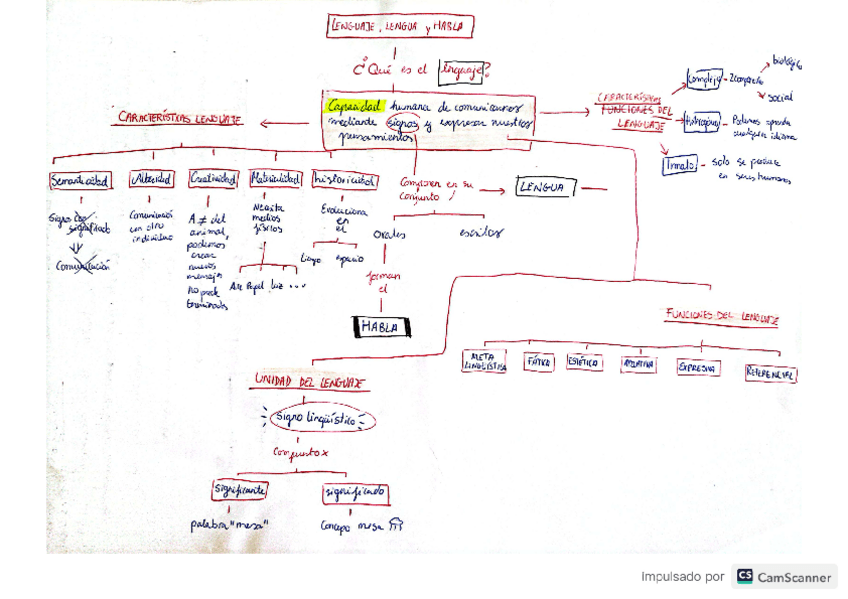 LENGUAJE, LENGUA y HABLA
¿Qué es el lenguaje?
Capacidad humana de comunicarnos
mediante signos y expresar nuestros
pensamientos
CARACTERÍSTICAS
FUNCIONES DEL
LENGUAJE
Complejo - 2 
biológico
social
Podemos aprender
cualquier idioma
Innato - solo se produce
en seres humanos
CARACTERÍSTICAS LENGUAJE
Semanticidad
Signo con
significado
Comunicación
Alteridad
Comunicación
con otro
individuo
Creatividad
A ≠ del
animal,
podemos
crear
nuevos
mensajes
no
Materialidad
Necesita
medios
físicos
Aire Papel luz ...
historicidad
Evoluciona
en
el
tiempo espacio
Componen en su
conjunto
LENGUA
orales
escritos
forman
el
HABLA
FUNCIONES DEL LENGUAJE
META
LINGÜÍSTICA
FÁTICA
ESTÉTICA
APELATIVA
EXPRESIVA
REFERENCIAL
UNIDAD DEL LENGUAJE
Signo lingüístico
Conjunto x
significante
palabra "mesa"
significado
concepto mesa
Impulsado por CS CamScanner